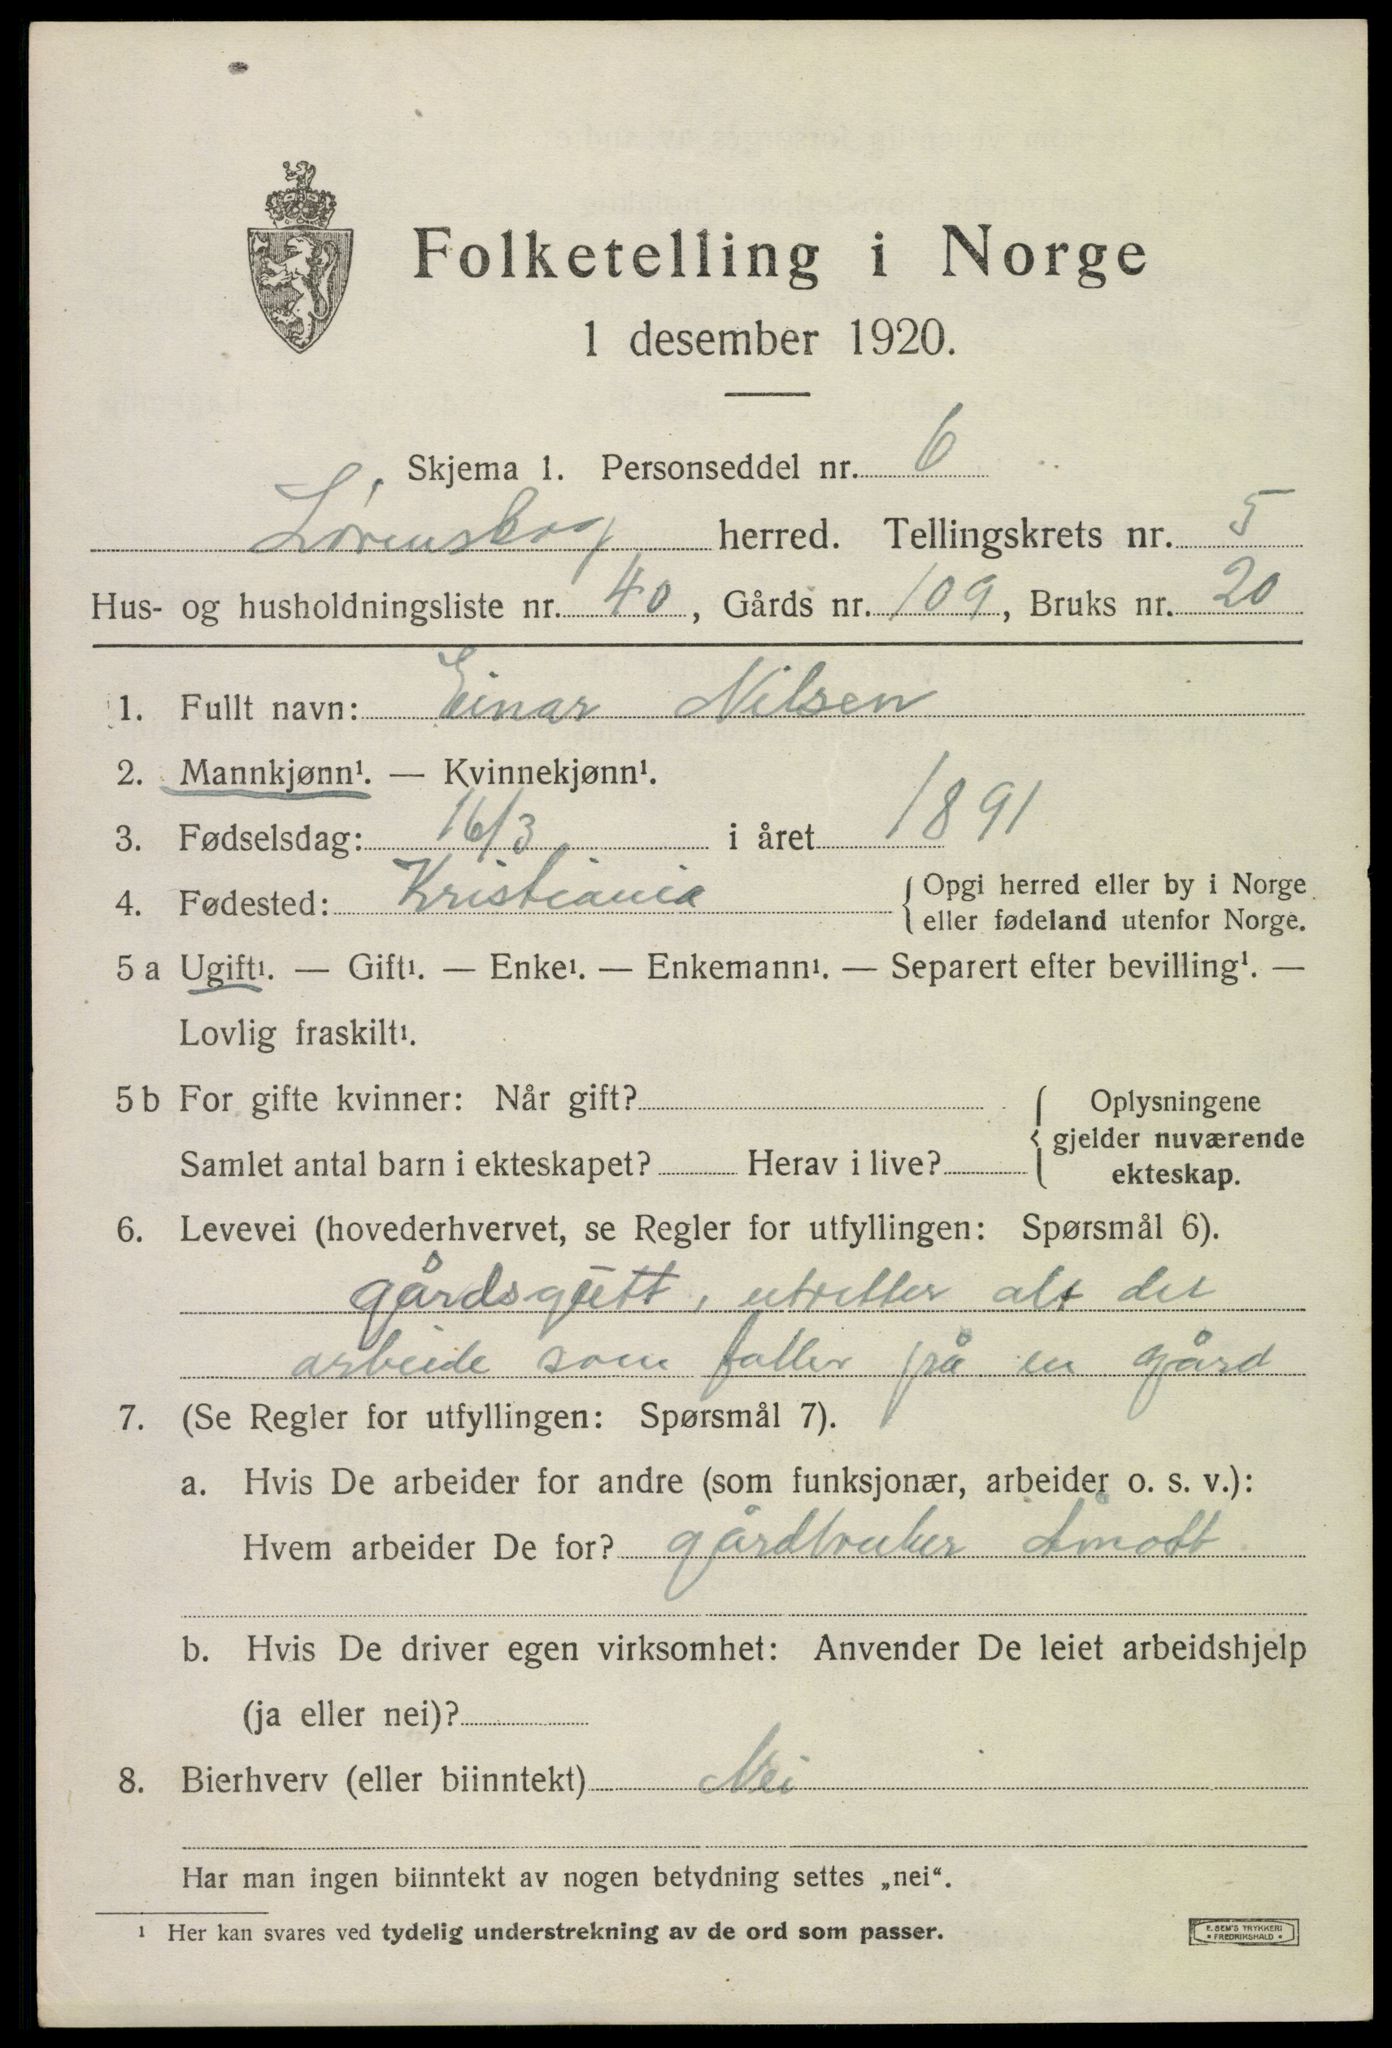 Folketelling i Norge
1 desember 1920.
Skjema 1. Personseddel nr. 6
Lørenskog herred. Tellingskrets nr. 5
Hus- og husholdningsliste nr. 40, Gårds nr. 109, Bruks nr. 20
1. Fullt navn: Einar Nilsen
2. Mannkjønn¹. — Kvinnekjønn¹.
3. Fødselsdag: 16/3 i året 1891
4. Fødested: Kristiania { Opgi herred eller by i Norge
eller fødeland utenfor Norge.
5 a Ugift¹. — Gift¹. — Enke¹. — Enkemann¹. — Separert efter bevilling¹. —
Lovlig fraskilt¹.
5 b For gifte kvinner: Når gift? { Oplysningene
gjelder nuværende
Samlet antal barn i ekteskapet? Herav i live? ekteskap.
6. Levevei (hovederhvervet, se Regler for utfyllingen: Spørsmål 6).
gårdsgutt, utretter alt det
arbeide som faller på en gård
7. (Se Regler for utfyllingen: Spørsmål 7).
a. Hvis De arbeider for andre (som funksjonær, arbeider o. s. v.):
Hvem arbeider De for? gårdbruker Åmott
b. Hvis De driver egen virksomhet: Anvender De leiet arbeidshjelp
(ja eller nei)?
8. Bierhverv (eller biinntekt) Nei
Har man ingen biinntekt av nogen betydning settes „nei“.
¹ Her kan svares ved tydelig understrekning av de ord som passer.
E. SEM'S TRYKKERI
• FREDRIKSHALD •